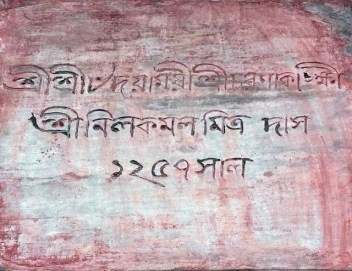 শ্রীশ্রী৺দয়াময়ী শ্রীচরণাকাঙ্ক্ষী
শ্রীনিলকমল মিত্র দাস
১২৫৭ সাল